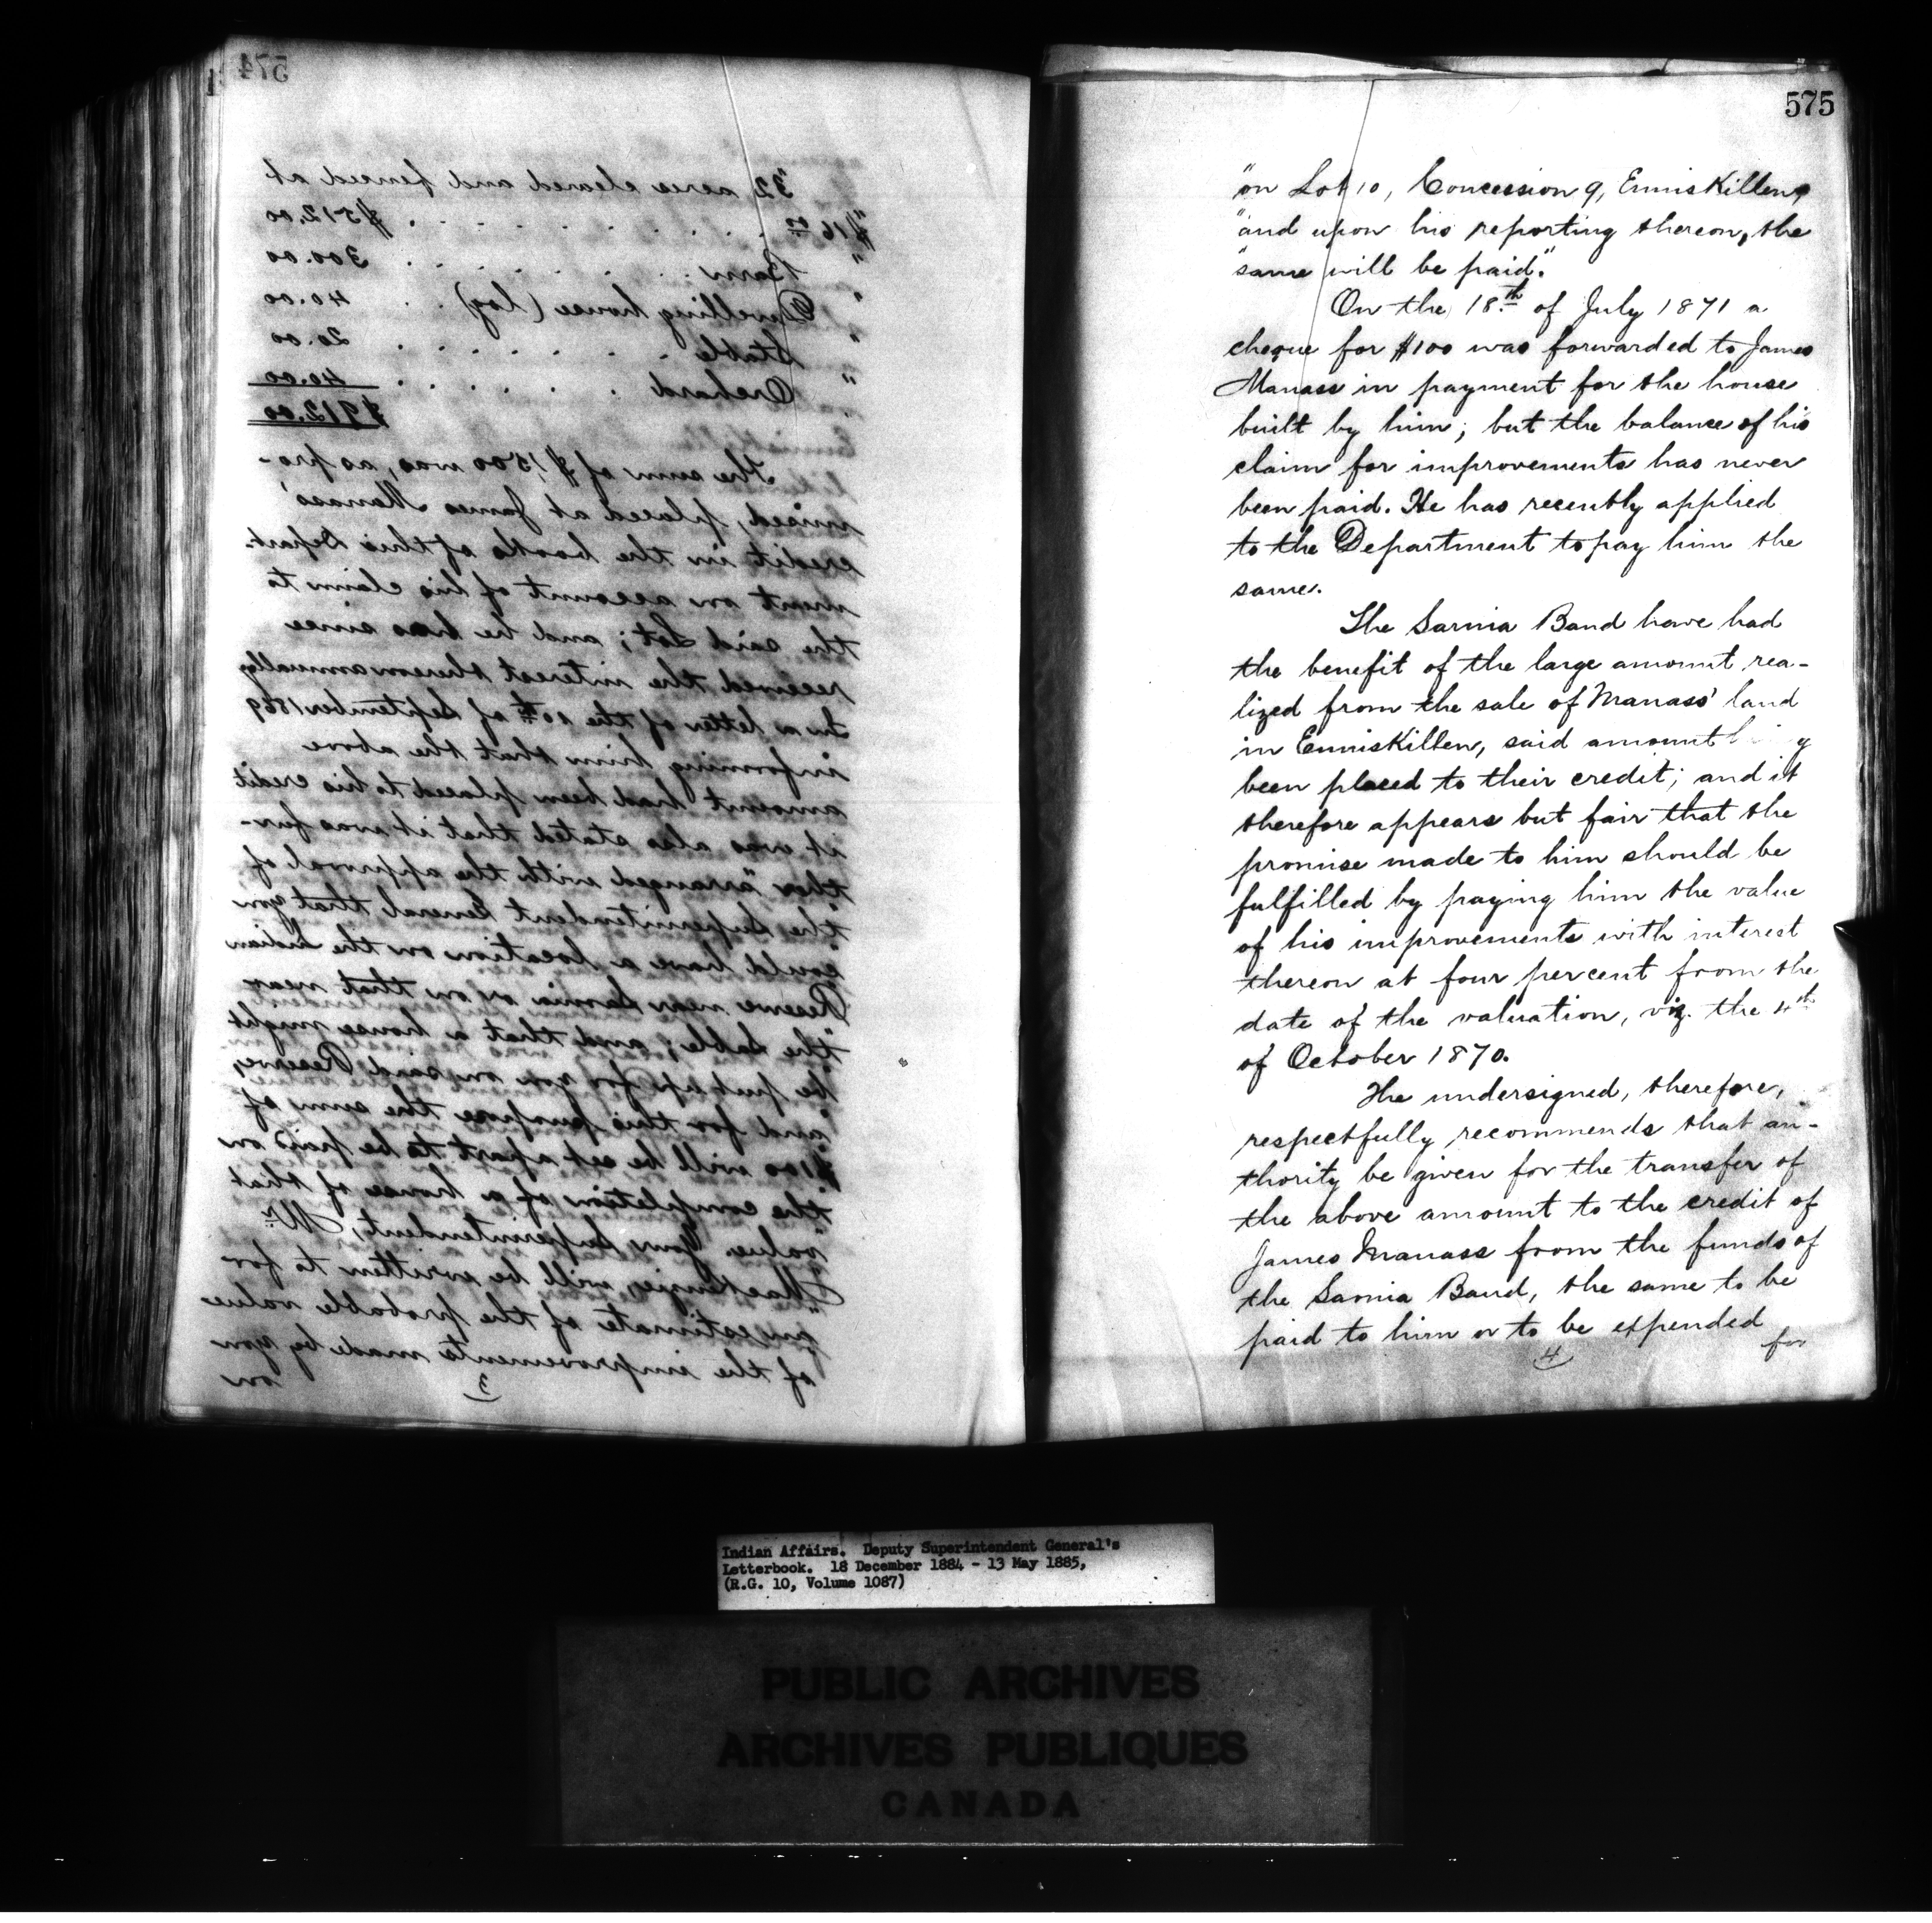 574
"32 acres cleared and fenced at
"$16 00 . . . . . . . . $512.00
" Barn . . . . . . 300.00
" Dwelling house (log) . . 40.00
" Stable . . . . . . . 20.00
" Orchard . . . . . . 40.00
$912.00
The sum of $1500 was, as pro-
mised, placed at James Manass'
credit in the books of this Depart-
ment on account of his claim to
the said Lot; and he has since
received the interest thereon annually
In a letter of the 10th of September 1869
informing him that the above
amount had been placed to his credit
it was also stated that it was fur-
ther "arranged with the approval of
"the Superintendent General that you
could have a location on the Indian
Reserve near Sarnia or on that near
"the Sable; and that a house might
be put up for you on said Reserve,
"and for this purpose the sum of
$100 will be set apart to be paid on
"the completion of a house of that
"value. Your Superintendent, Mr
MacKenzie, will be written to for
"an estimate of the probable value
of the improvements made by you
3
on
575
"on Lot 10, Concession 9, Enniskillen,
"and upon his reporting thereon, the
"same will be paid."
On the 18th of July 1871 a
cheque for $100 was forwarded to James
Manass in payment for the house
built by him; but the balance of his
claim for improvements has never
been paid. He has recently applied
to the Department to pay him the
same.
The Sarnia Band have had
the benefit of the large amount rea-
lized from the sale of Manass' land
in Enniskillen, said amount
been placed to their credit; and it
therefore appears but fair that the
promise made to him should be
fulfilled by paying him the value
of his improvements with interest
thereon at four per cent from the
date of the valuation, viz. the 4th
of October 1870.
The undersigned, therefore,
respectfully recommends that au-
thority be given for the transfer of
the above amount to the credit of
James Manass from the funds of
the Sarnia Band, the same to be
paid to him or to be expended
4
for
Indian Affairs. Deputy Superintendent General's
Letterbook. 18 December 1884 - 13 May 1885,
(R.G. 10, Volume 1087)
PUBLIC ARCHIVES
ARCHIVES PUBLIQUES
CANADA